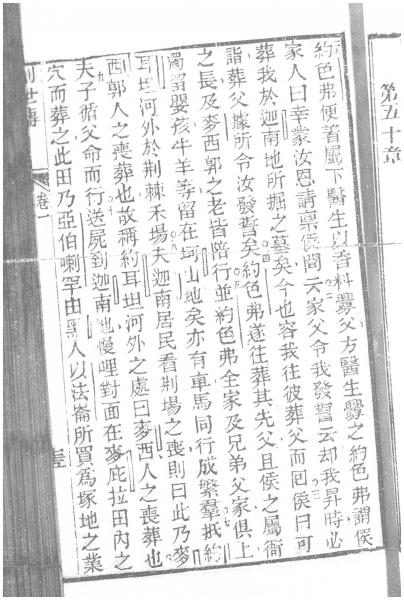 第五十章
約色弗便着屬下醫生以香料釁父方醫生釁之約色弗謂侯
家人曰幸蒙汝恩請禀侯聞云家父令我發誓云却我昇時必
葬我於迦南地所掘之墓矣今也容我往彼葬父而囘侯曰可
詣葬父據所令汝發誓矣約色弗遂往葬其先父且侯之屬衙
之長及麥西郭之老皆陪行並約色弗全家及兄弟父家俱上
獨留嬰孩牛羊等留在坷山地矣亦有車馬同行成繁羣扺約
耳坦河外於荆棘禾場夫迦南居民看荆場之喪則曰此乃麥
西郭人之喪葬也故稱約耳坦河外之處曰麥西人之喪葬也
夫子循父命而行送屍到迦南地慢哩對面在麥庇拉田內之
穴而葬之此田乃亞伯喇罕由黑人以法崙所買爲塚地之業
創世傳 卷一